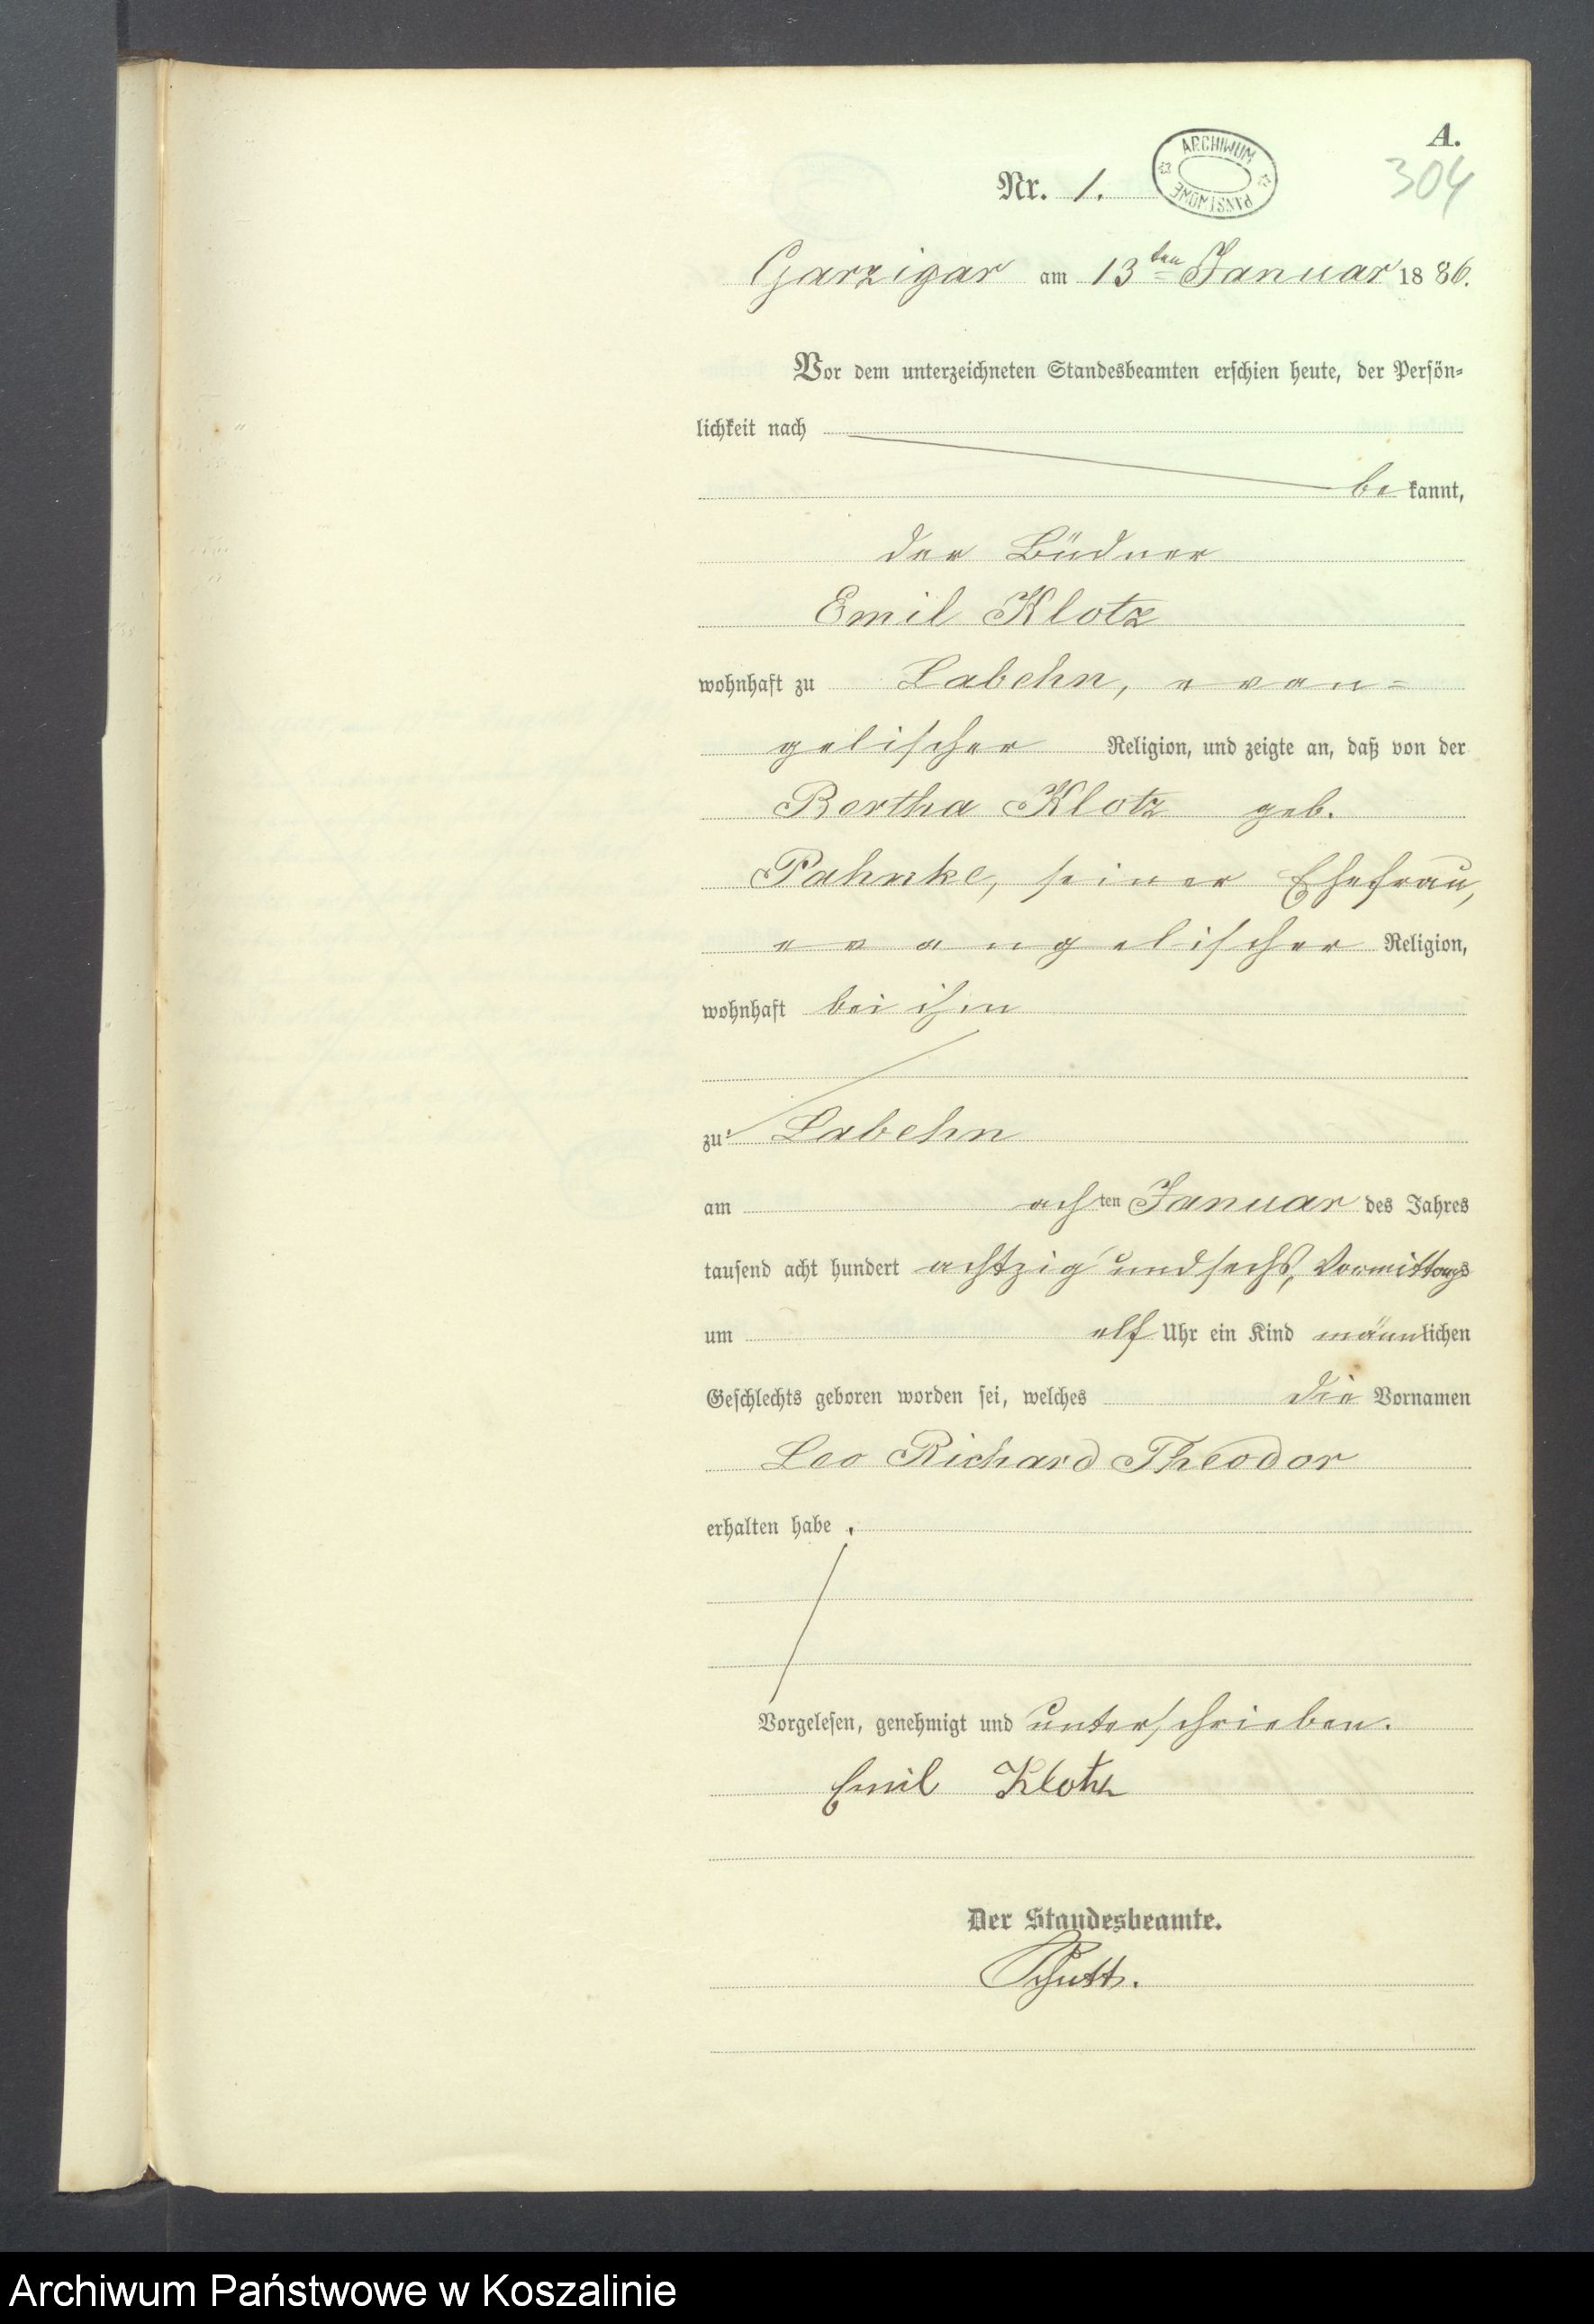 A.
304
Nr. 1.
ARCHIWUM PAŃSTWOWE
Garzigar am 13ten Januar 1886.
Vor dem unterzeichneten Standesbeamten erschien heute, der Persön-
lichkeit nach
bekannt,
der Büdner
Emil Klotz
wohnhaft zu Labehn, evan-
gelischer Religion, und zeigte an, daß von der
Bertha Klotz geb.
Pahnke, seiner Ehefrau,
evangelischer Religion,
wohnhaft bei ihm
zu Labehn
am achten Januar des Jahres
tausend acht hundert achtzig und sechs, Vormittags
um elf Uhr ein Kind männlichen
Geschlechts geboren worden sei, welches die Vornamen
Leo Richard Theodor
erhalten habe.
Vorgelesen, genehmigt und unterschrieben.
Emil Klotz
Der Standesbeamte.
Schutt.
Archiwum Państwowe w Koszalinie